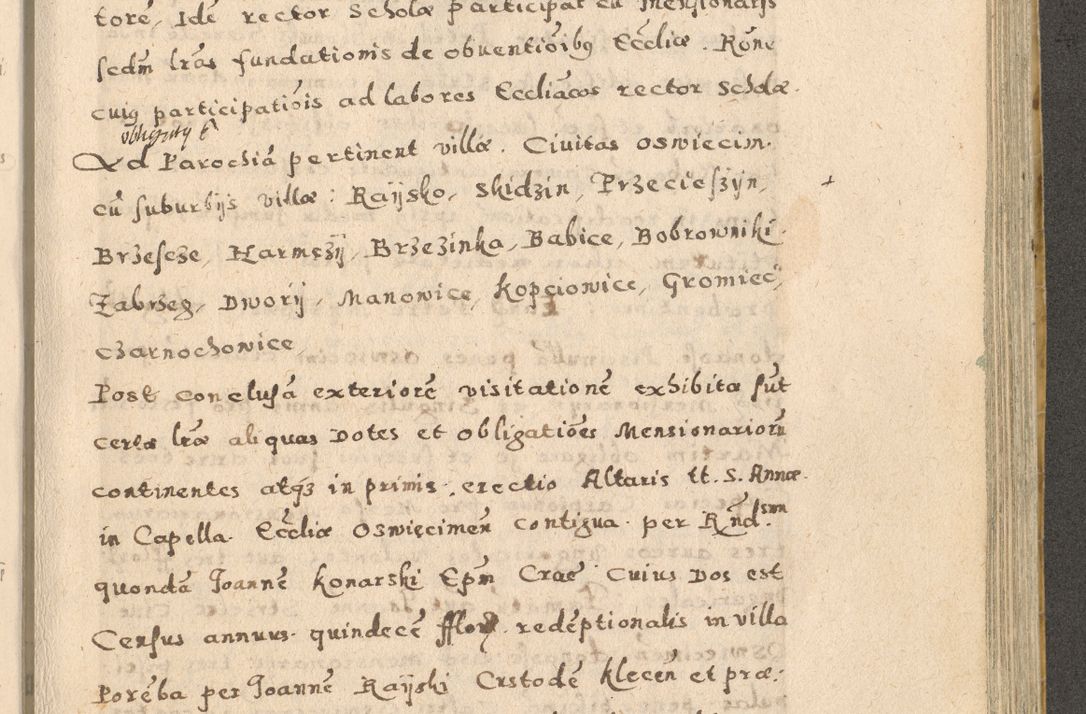 torē, Idē rector Scholæ participat cū Mensionarijs
scdm lrās fundationis de obuentiōibq Ecclīæ. Rōne
cuiq participatiōis ad labores Eccliācos rector Scholæ.
Ad Parochiā pertinent villæ. Ciuitas Oswiecim.
cū suburbijs villæ: Raÿsko, Skidzin, Przecieszÿn,
Brzescze, Harmęzÿ, Brzezinka, Babice, Bobrowniki.
Zabrzeg, Dworÿ, Manowice, Kopciowice, Gromiec,
Czarnochowice
Post conclusā exteriorē visitationē exhibitæ sūt
certæ lræ aliquas Dotes et obligatiōes Mensionariorū
continentes atq3 in primis. erectio Altaris tt. S. Annæ.
in Capella. Ecclīæ Oswięcimeñ contigua. per Rñd. ssm
quondā Joannē Konarski Epm̄ Crac̄ Cuius Dos est
Census annuus. quindecē fflor. redēptionalis in villa
Porēba per Joannē Raÿski Custodē Klecen̄ et præ: